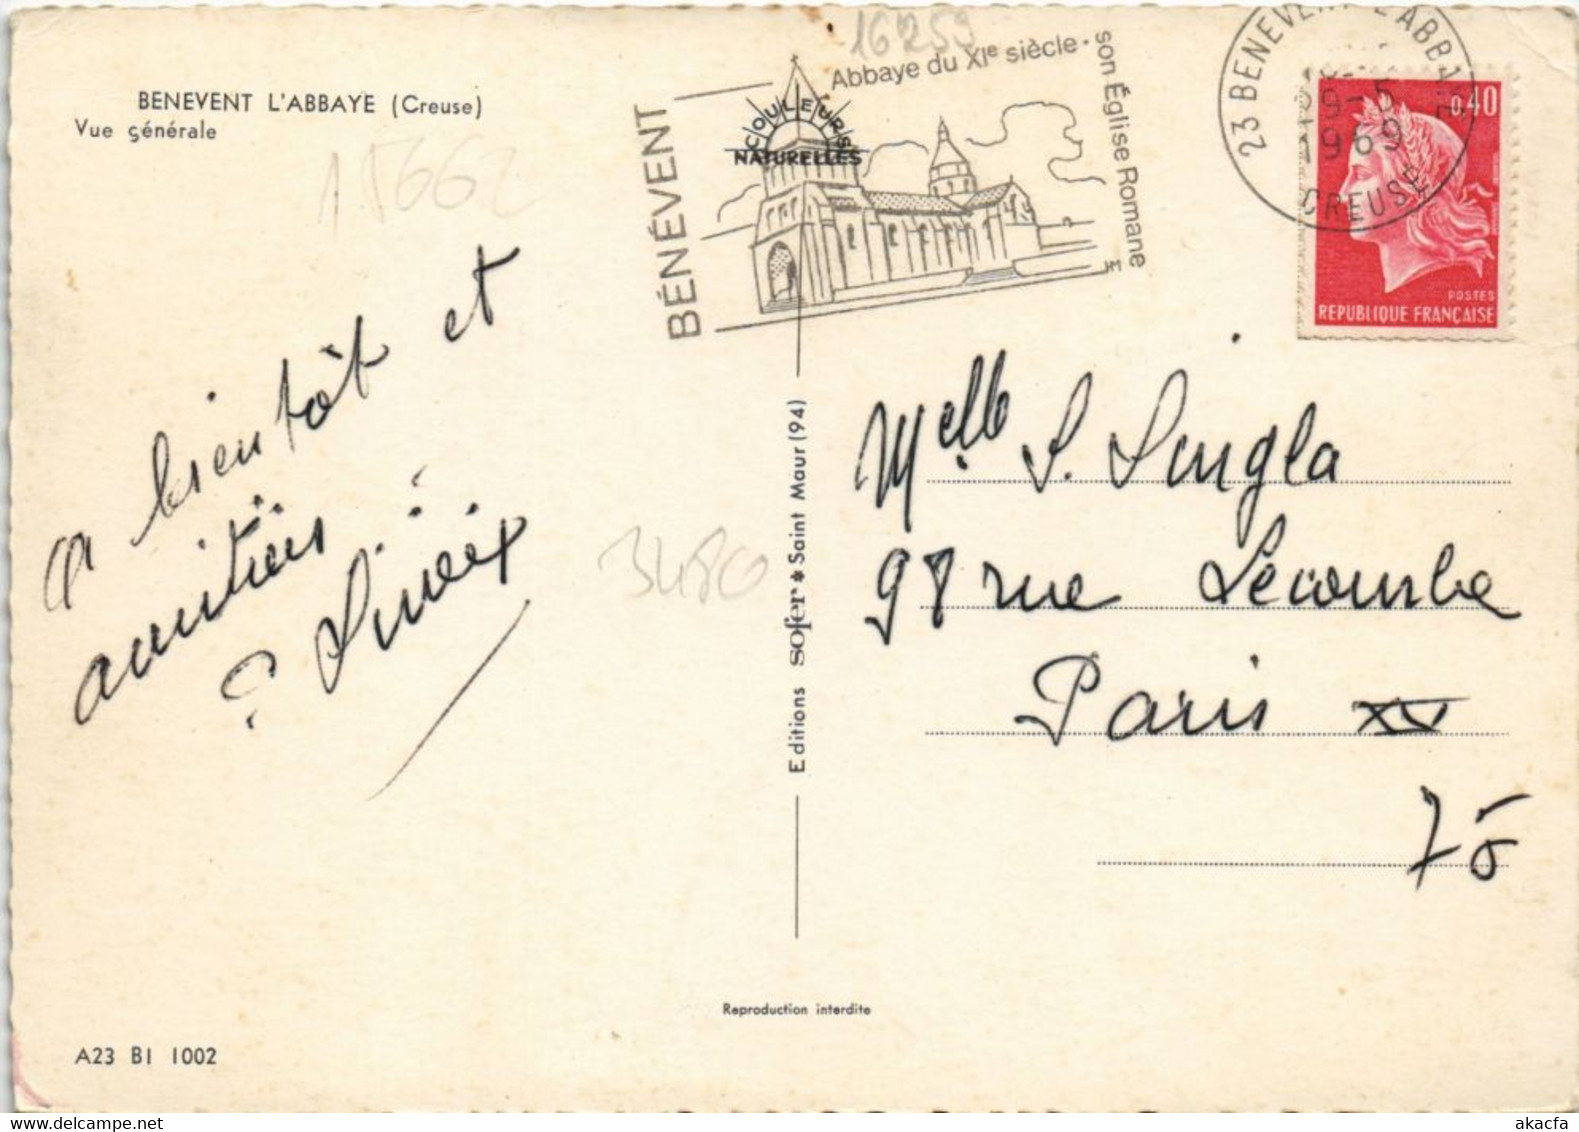 BENEVENT L'ABBAYE (Creuse)
Vue générale
A bientôt et
amitiés
BÉNÉVENT
Abbaye du XIe siècle - son Église Romane
COULEURS
NATURELLES
23 BENEVENT L'ABBAYE
29-5
1969
CREUSE
0,40
POSTES
REPUBLIQUE FRANÇAISE
16259
15662
3480
Editions sofer * Saint Maur (94)
Melle S. Singla
98 rue Lecourbe
Paris XV
75
Reproduction interdite
A23 BI 1002
akacfa